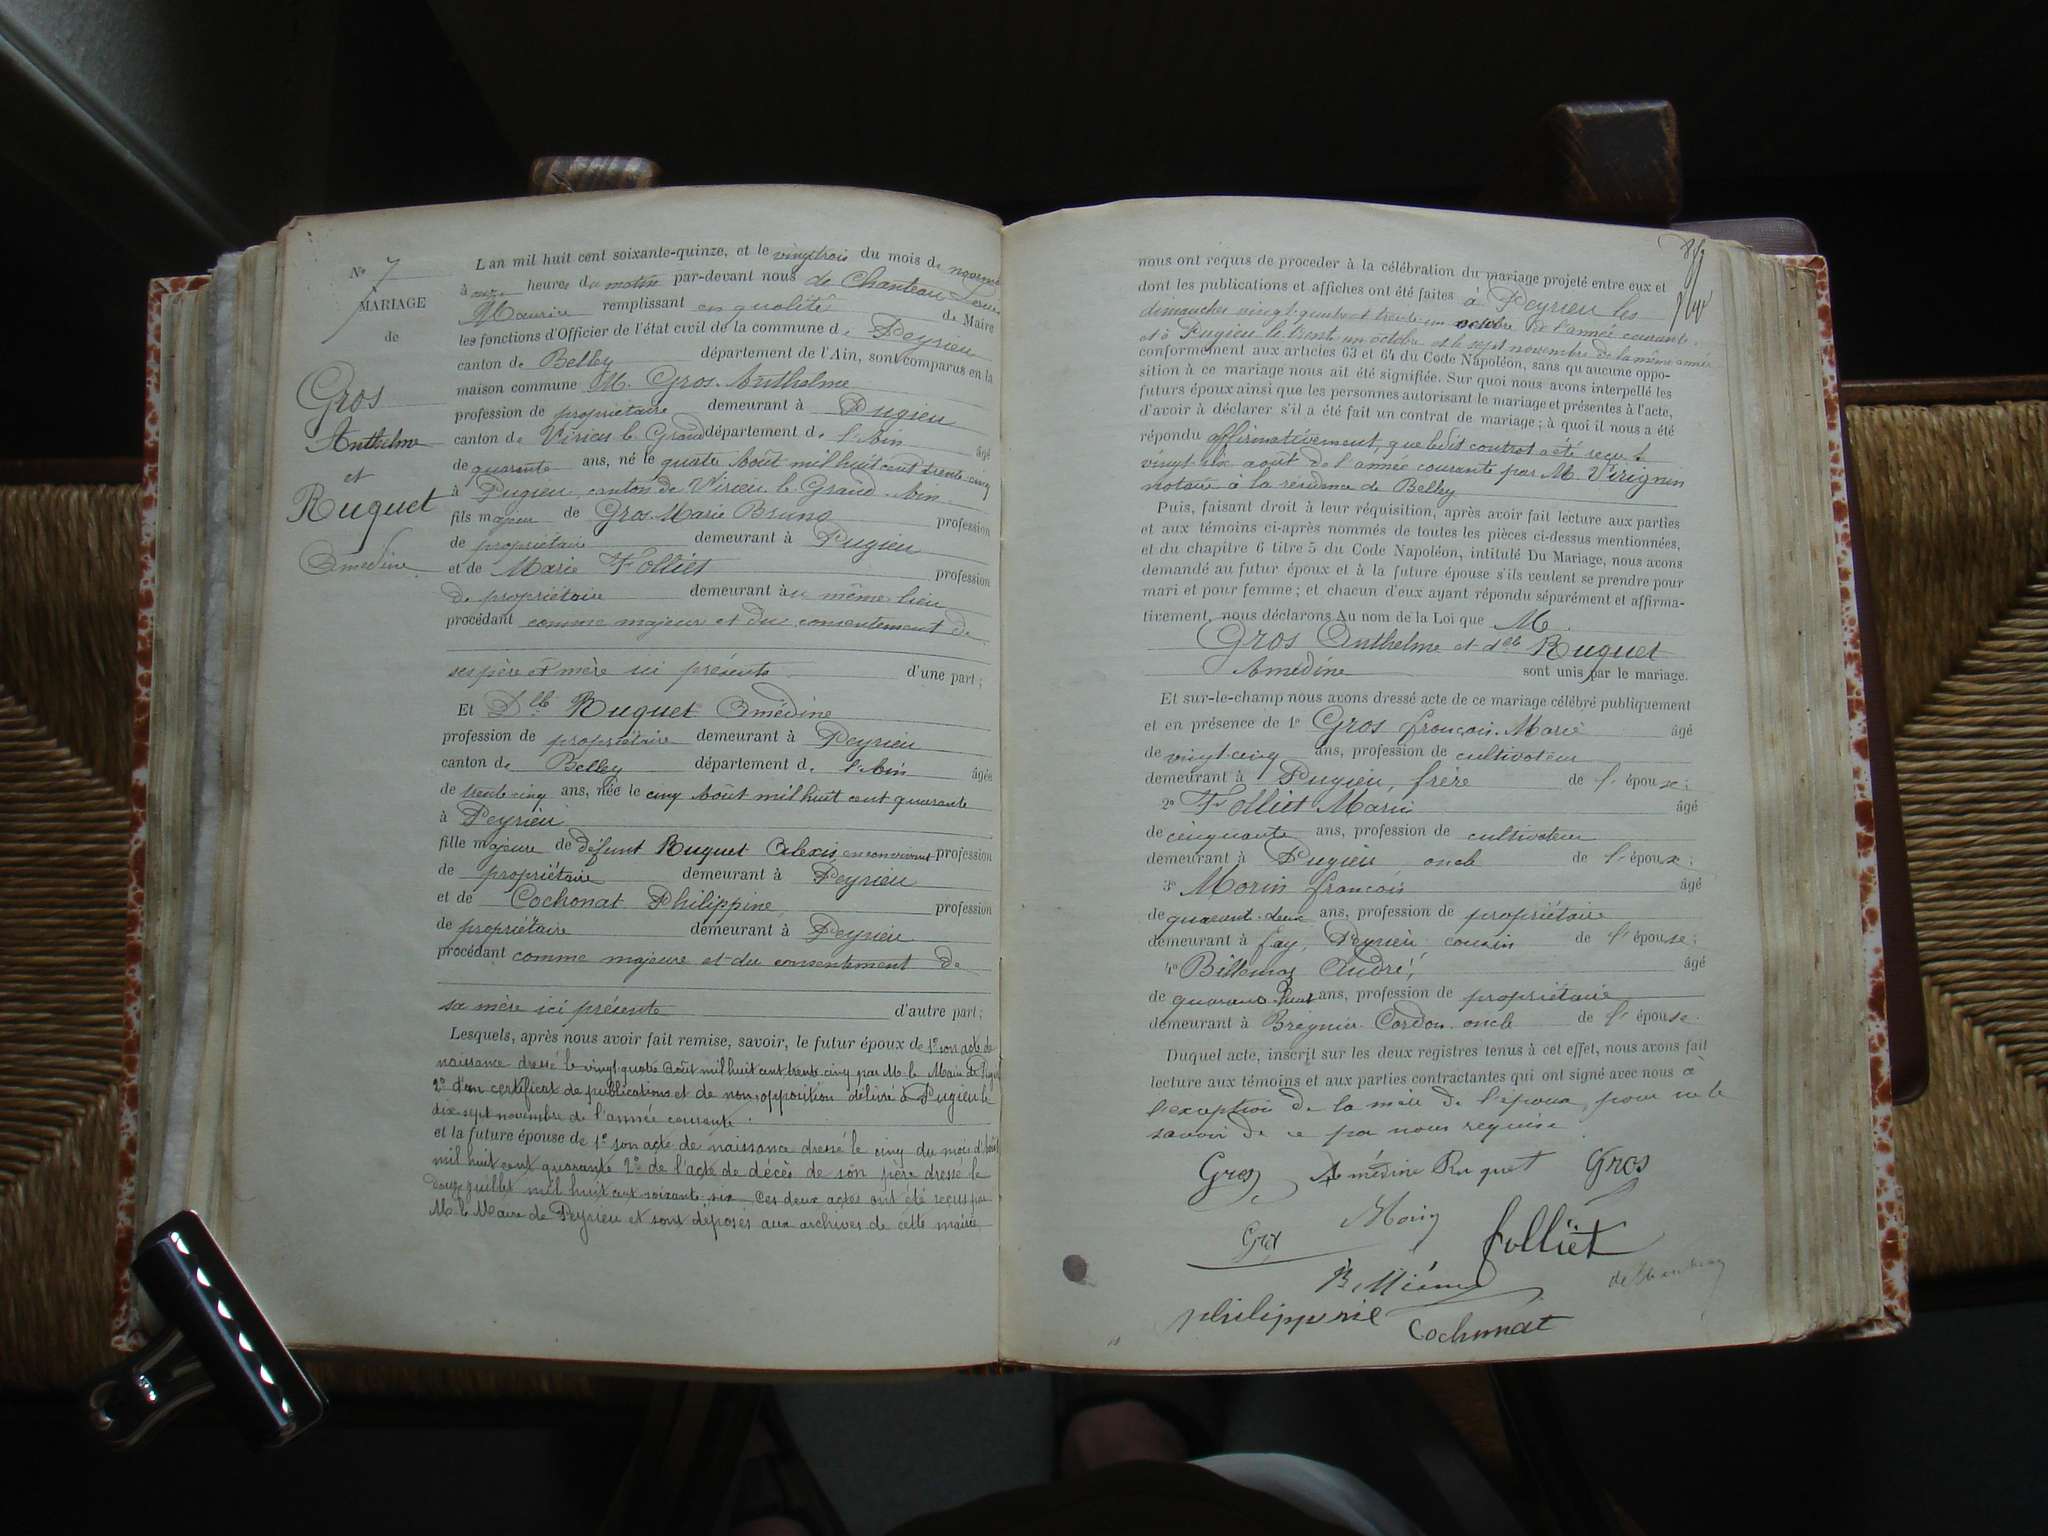 N° 7
MARIAGE
de
Gros
Anthelme
et
Ruquet
Amédine
L'an mil huit cent soixante-quinze, et le vingt trois du mois de novembre
à onze heures du matin par-devant nous de Chanteau
Maurice remplissant en qualité de Maire
les fonctions d'Officier de l'état civil de la commune de Peyrieu
canton de Belley département de l'Ain, sont comparus en la
maison commune M. Gros Anthelme
profession de propriétaire demeurant à Pugieu
canton de Virieu le Grand département de l'Ain âgé
de quarante ans, né le quatre Août mil huit cent trente-cinq
à Pugieu, canton de Virieu le Grand Ain
fils majeur de Gros Marie Bruno profession
de propriétaire demeurant à Pugieu
et de Marie Folliet profession
de propriétaire demeurant au même lieu
procédant comme majeur et du consentement de
ses père et mère ici présents d'une part;
Et Dlle Ruquet Amédine
profession de propriétaire demeurant à Peyrieu
canton de Belley département de l'Ain âgée
de trente cinq ans, née le cinq Août mil huit cent quarante
à Peyrieu
fille majeure de défunt Ruquet Alexis en son vivant profession
de propriétaire demeurant à Peyrieu
et de Cochonat Philippine profession
de propriétaire demeurant à Peyrieu
procédant comme majeure et du consentement de
sa mère ici présente d'autre part;
Lesquels, après nous avoir fait remise, savoir, le futur époux de 1° son acte de
naissance dressé le vingt quatre Août mil huit cent trente cinq par M. le Maire de
2° d'un certificat de publications et de non opposition délivré à Pugieu le
dix sept novembre de l'année courante.
et la future épouse de 1° son acte de naissance dressé le cinq du mois d'Août
mil huit cent quarante 2° de l'acte de décès de son père dressé le
douze juillet mil huit cent soixante six Ces deux actes ont été reçus par
M. le Maire de Peyrieu et sont déposés aux archives de cette mairie
nous ont requis de proceder à la célébration du mariage projeté entre eux et
dont les publications et affiches ont été faites à Peyrieu les
dimanches vingt quatre et trente un octobre de l'année courante.
et à Pugieu le trente un octobre et le sept novembre de la même année
conformément aux articles 63 et 64 du Code Napoléon, sans qu'aucune oppo-
sition à ce mariage nous ait été signifiée. Sur quoi nous avons interpellé les
futurs époux ainsi que les personnes autorisant le mariage et présentes à l'acte,
d'avoir à déclarer s'il a été fait un contrat de mariage; à quoi il nous a été
répondu affirmativement, que ledit contrat a été reçu le
vingt six août de l'année courante par M. Virignin
notaire à la résidence de Belley
Puis, faisant droit à leur réquisition, après avoir fait lecture aux parties
et aux témoins ci-après nommés de toutes les pièces ci-dessus mentionnées,
et du chapitre 6 titre 5 du Code Napoléon, intitulé Du Mariage, nous avons
demandé au futur époux et à la future épouse s'ils veulent se prendre pour
mari et pour femme; et chacun d'eux ayant répondu séparément et affirma-
tivement, nous déclarons Au nom de la Loi que M.
Gros Anthelme et dlle Ruquet
Amédine sont unis par le mariage.
Et sur-le-champ nous avons dressé acte de ce mariage célébré publiquement
et en présence de 1° Gros françois Marie âgé
de vingt-cinq ans, profession de cultivateur
demeurant à Pugieu, frère de l'épouse;
2° Folliet Marin âgé
de cinquante ans, profession de cultivateur
demeurant à Pugieu oncle de l'époux;
3° Morin françois âgé
de quarante-deux ans, profession de propriétaire
demeurant à fay, Peyrieu cousin de l'épouse;
4° Billemaz André, âgé
de ans, profession de propriétaire
demeurant à Brégnier Cordon oncle de l'épouse.
Duquel acte, inscrit sur les deux registres tenus à cet effet, nous avons fait
lecture aux témoins et aux parties contractantes qui ont signé avec nous à
l'exception de la mère de l'époux, pour ne le
savoir de ce par nous requise
Gros Amédine Ruquet Gros
Morin
Gros Folliet
philippine Cochonat